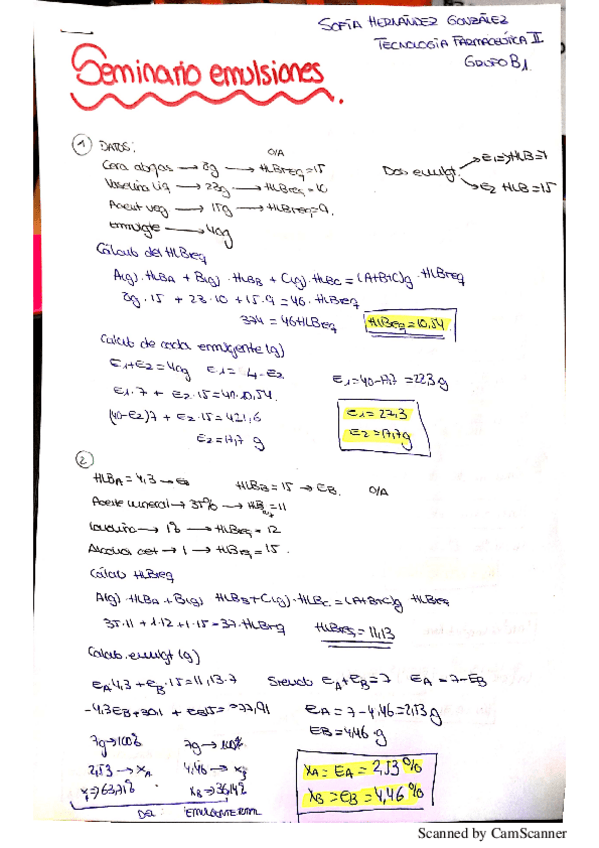 SOFÍA HERNÁNDEZ GONZÁLEZ
TECNOLOGÍA FARMACEÚTICA II
GRUPO B1
Seminario emulsiones.
1 DATOS: O/A
Cera abejas → 8g → HLBreq = 15
Vaselina liq → 23g → HLBreq = 10
Aceit veg → 15g → HLBreq = 9.
Emulgte → 40g
Dos emulgt. → E1 => HLB = 7
→ E2 HLB = 15
Cálculo del HLBreq
A(g) · HLBA + B(g) · HLBB + C(g) · HLBC = (A+B+C)g · HLBreq
8g · 15 + 23 · 10 + 15 · 9 = 46 · HLBreq
374 = 46 HLBreq HLBreq = 10,54
Calculo de cada emulgente (g)
E1 + E2 = 40g E1 = 4 - E2
E1 · 7 + E2 · 15 = 40 · 10,54.
(40-E2)7 + E2 · 15 = 421,6
E2 = 17,7 g
E1 = 40 - 17,7 = 22,3 g
E1 = 22,3
E2 = 17,7g
2
HLBA = 4,3 → EA HLBB = 15 → EB. O/A
Aceite mineral → 35% → HLB = 11
Lanolina → 1% → HLBreq = 12
Alcohol cet → 1 → HLBreq = 15.
Cálculo HLBreq
A(g) · HLBA + B(g) HLBB + C(g) · HLBC = (A+B+C)g HLBreq
35 · 11 + 1 · 12 + 1 · 15 = 37 · HLBreq HLBreq = 11,13
Calculo emulgt (g)
EA · 4,3 + EB · 15 = 11,13 · 7 Siendo EA + EB = 7 EA = 7 - EB
-4,3EB + 30,1 + EB15 = 77,91 EA = 7 - 4,46 = 2,53 g
EB = 4,46 g
7g → 100% 7g → 100%
2,53 → XA 4,46 → XB
XB => 36,14%
XA = EA = 2,53 %
XB = EB = 4,46 %
Del EMULGENTE TOTAL
Scanned by CamScanner